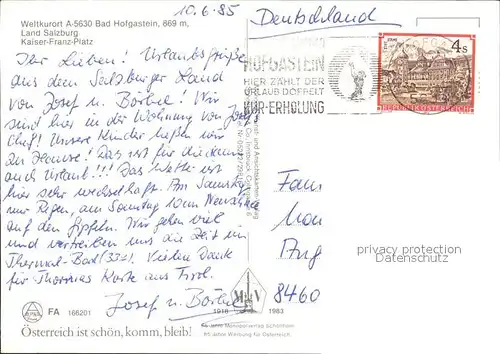 10.6.85
Deutschland
Weltkurort A-5630 Bad Hofgastein, 869 m,
Land Salzburg
Kaiser-Franz-Platz
Ihr Lieben! Urlaubsgrüße
aus dem Salzburger Land
von Josef u. Bärbel! Wir
sind hier in der Wohnung von Josefs
Chef! Unsere Kinder ließen wir
zu Hause! Das ist für die dann
auch Urlaub!!! Das Wetter ist
hier sehr wechselhaft. Am Samstag
nur Regen, am Sonntag 10cm Neuschnee
auf den Gipfeln. Wir gehen viel
und vertreiben uns die Zeit im
Thermal-Bad (33°). Vielen Dank
für Thomas Karte aus Tirol.
Josef u. Bärbel
HOFGASTEIN
HIER ZÄHLT DER
URLAUB DOPPELT
KUR-ERHOLUNG
4s
REPUBLIK ÖSTERREICH
Fam
Aug
8460
Persönliche Daten
Datenschutz
FA 166201
1918 1983
Österreich ist schön, komm, bleib!
65 Jahre Monopolverlag Schönhofer
65 Jahre Werbung für Österreich